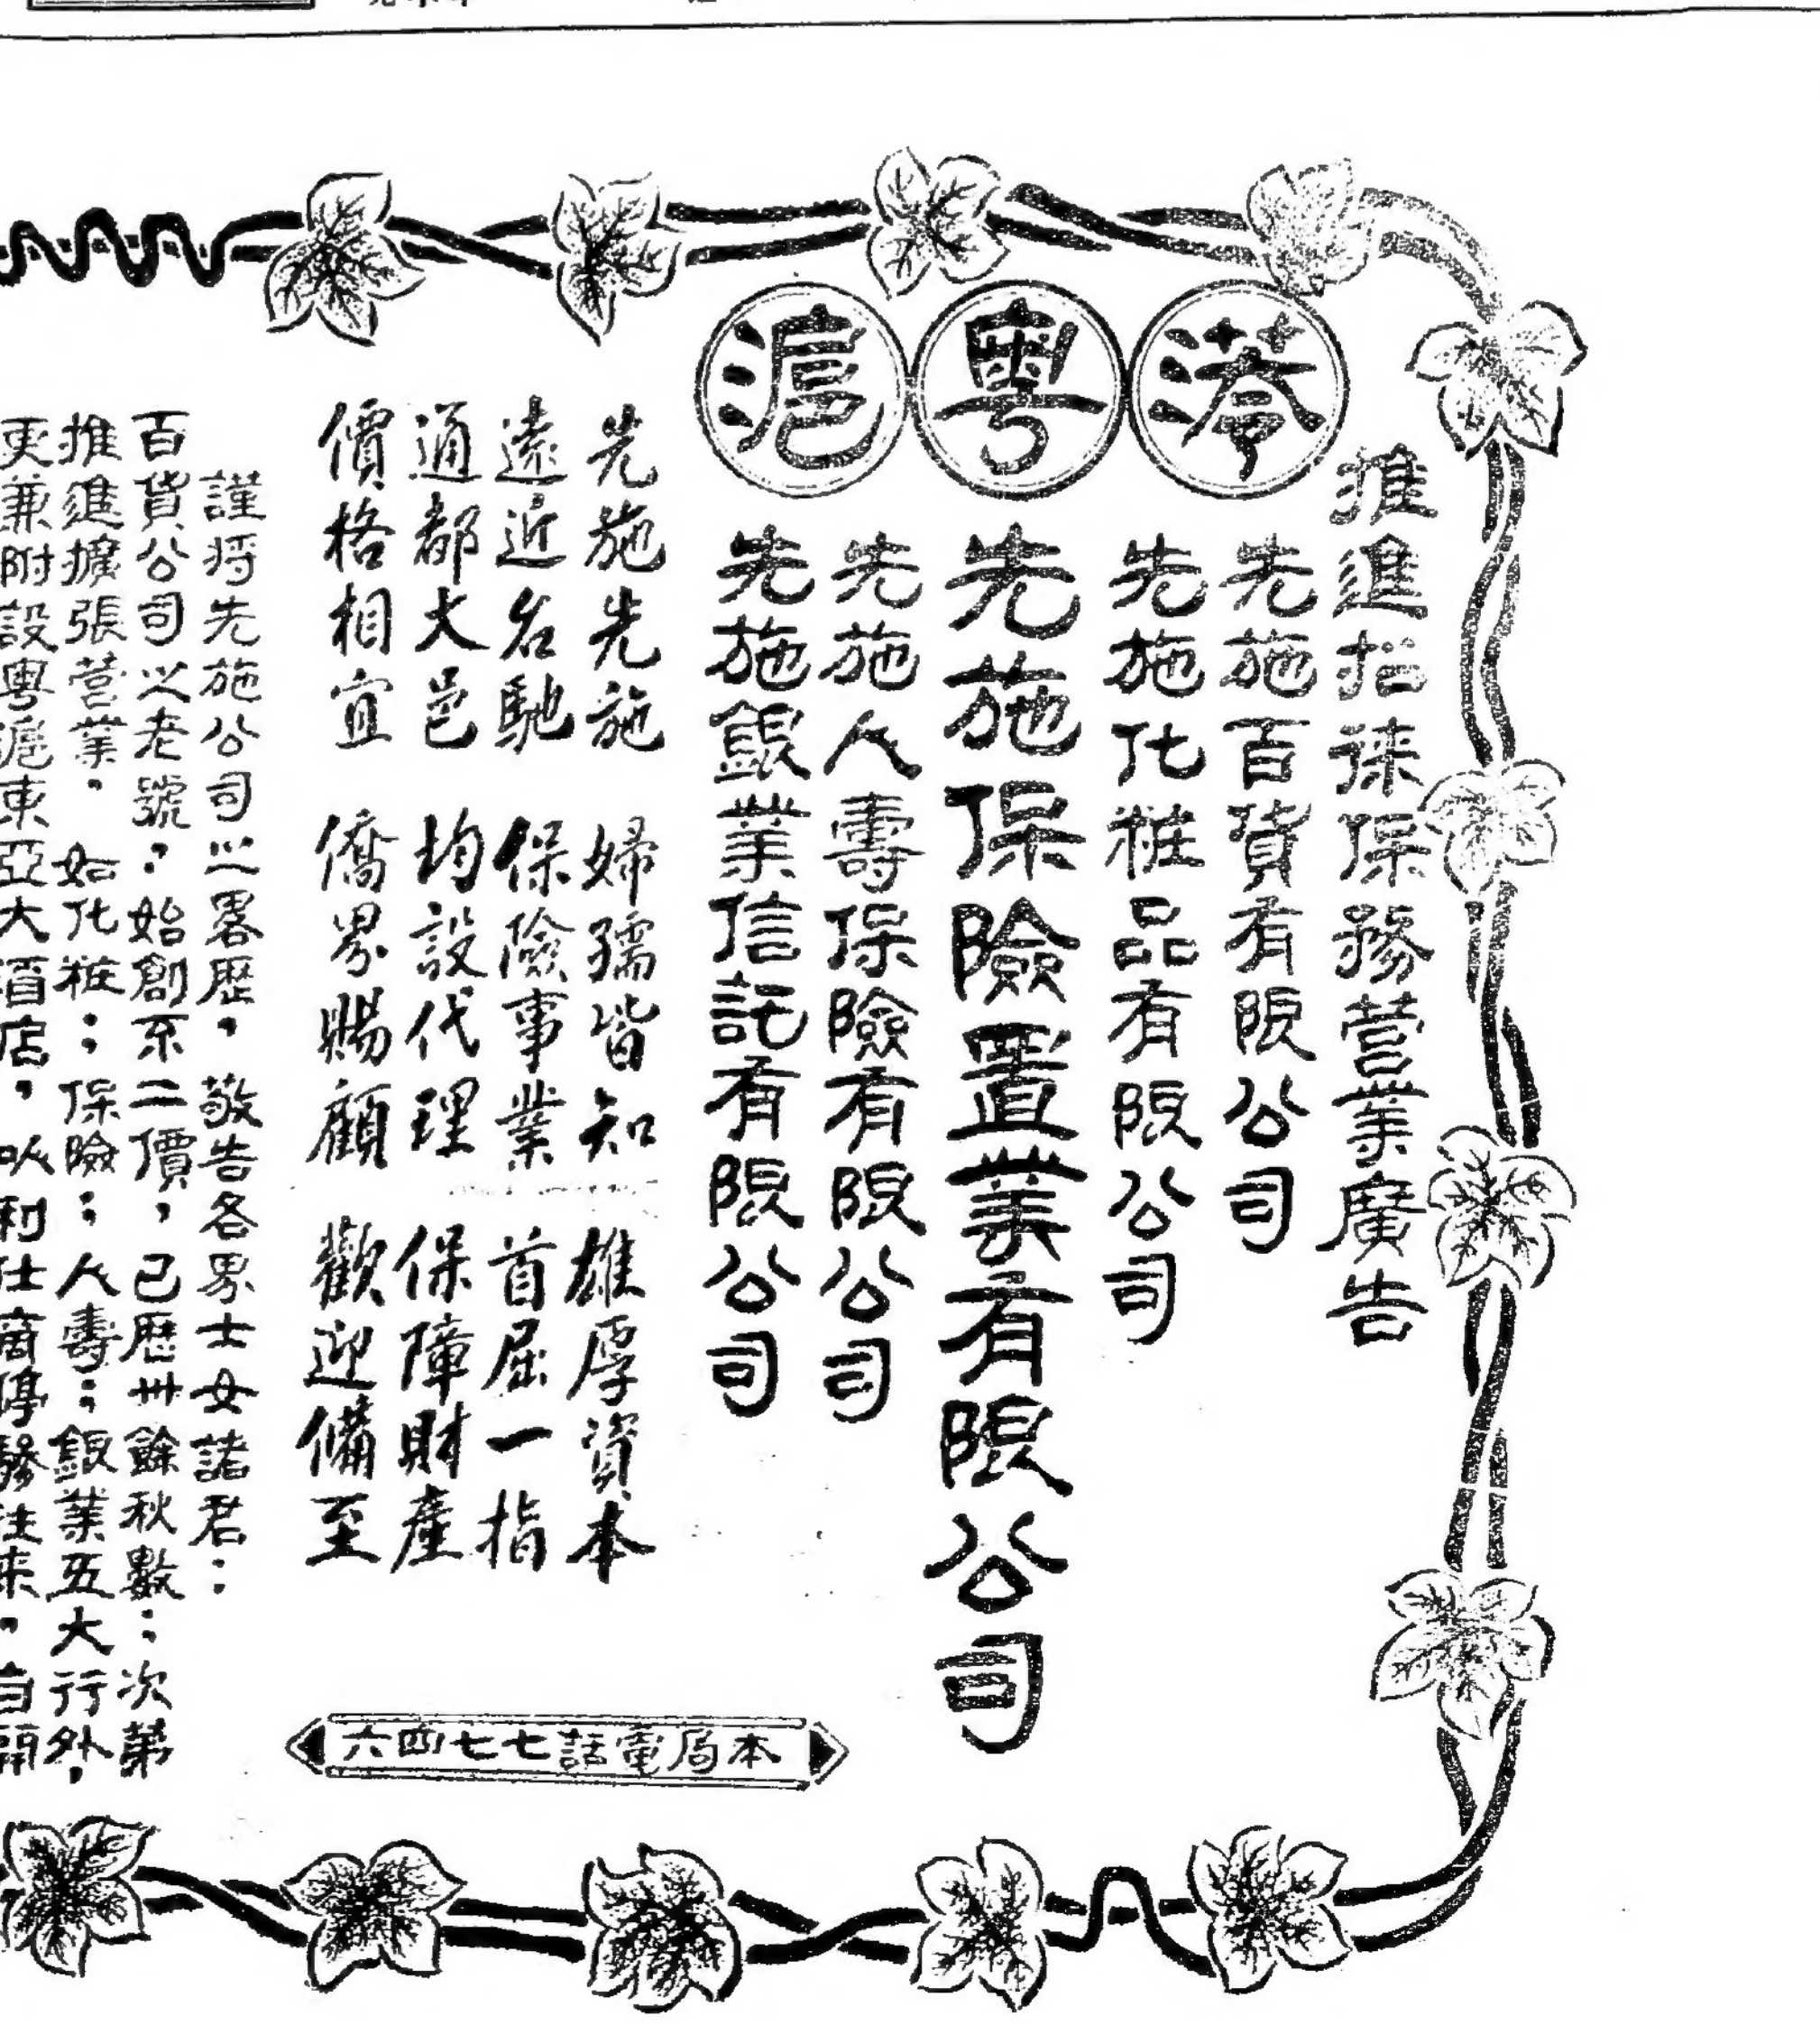 港粵滬
推進招徠保務營業廣告
先施百貨有限公司
先施化粧品有限公司
先施保險置業有限公司
先施人壽保險有限公司
先施銀業信託有限公司
先施先施 婦孺皆知 雄厚資本
遠近名馳 保險事業 首屈一指
通都大邑 均設代理 保障財產
價格相宜 僑界賜顧 歡迎備至
本局電話七七四六
謹將先施公司之畧歷，敬告各界士女諸君：
百貨公司之老號：始創不二價，已歷卅餘秋數：次第
推進擴張營業。如化粧；保險；人壽；銀業五大行外，
更兼附設粵滬東亞大酒店，以利仕商停驂往來，自開